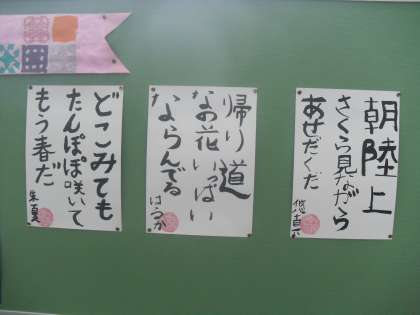 朝陸上
さくら見ながら
あせだくだ
帰り道
なの花いっぱい
ならんでる
はるか
どこみても
たんぽぽ咲いて
もう春だ
朱夏